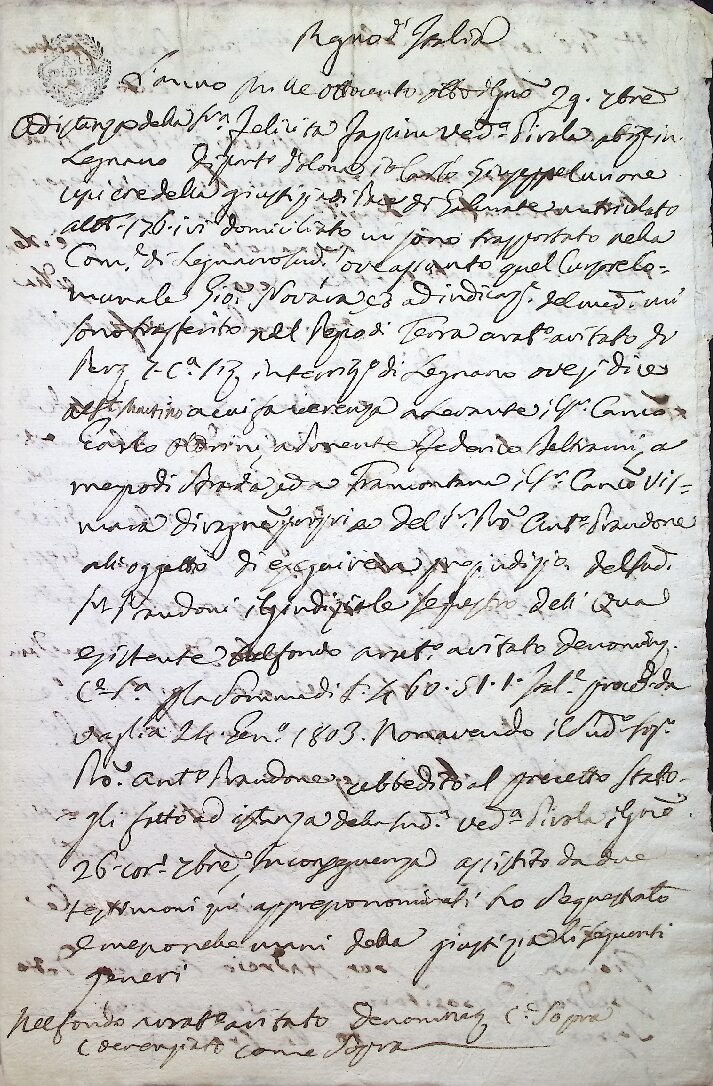 Regno d'Italia
L'anno Mille Ottocento otto il gno 29. 7bre
Ad istanza della Sra Felicita Vedª Pirola abitte in
Legnano Dipartº d'olona, io Carlo Giuseppe
usciere della giustizia di Pace di Gallarate matricolato
al Nº 176. ivi domiciliato mi sono trasportato nella
Com.e di Legnano sud.º ove assunto quel Cursore Co=
munale Gio. Novara, ed ad indicaz.e del med.º mi
sono trasferito nel Pezzo di Terra aratº avitato di
Perz 7. Cª in territº di Legnano ove si dice
al St Martino a cui fa coerenza a Levante il Sr. Canco
Carlo Oldrini, a Ponente Federico Beltrami, a
mezzodi Strada, ed a Tramontana il Sr. Canco Vis=
mara di ragne propria del Sr. Antº Brandone
all'oggetto di eseguire a pregiudizio del sud.
Sr Brandoni il giudiziale sequestro dell'Uva
esistente nel fondo aratº avitato denominº.
Cº Sª p la Somma di £ 460. 51. 1. procedda
vaglia 24. Genº. 1803. Non avendo il sudº Sigr.
Antº Brandone ubbedito al precetto Statto=
gli fatto ad istanza della sudª. Vedª Pirola il gno
26. corr.e 7bre, In conseguenza assistito da due
testimoni qui appresso nominati ho sequestrato
e messo nelle mani della giustizia li seguenti
generi
Nel fondo aratº avitato denominº Cº Sopra
Coerenziato come Sopra